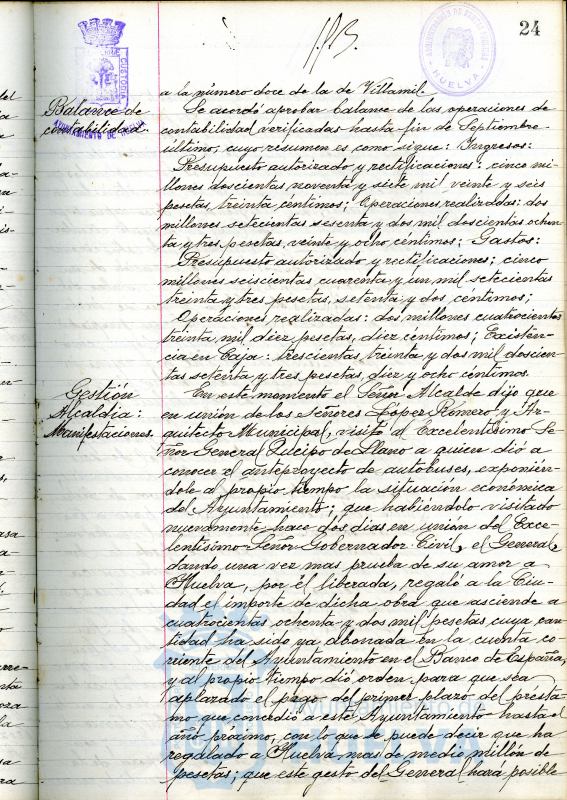 24
AYUNTAMIENTO DE HUELVA
CUSTODIA
HUELVA
a la número doce de la de Villamil.
Balance de
contabilidad.
Se acordó aprobar balance de las operaciones de
contabilidad verificadas hasta fin de Septiembre
último, cuyo resumen es como sigue: Ingresos:
Presupuesto autorizado y rectificaciones: cinco mi-
llones doscientas noventa y siete mil veinte y seis
pesetas, treinta céntimos; Operaciones realizadas: dos
millones setecientas sesenta y dos mil doscientas ochen-
ta y tres pesetas, veinte y ocho céntimos; Gastos:
Presupuesto autorizado y rectificaciones; cinco
millones seiscientas cuarenta y un mil setecientas
treinta y tres pesetas, setenta y dos céntimos;
Operaciones realizadas: dos millones cuatrocientas
treinta mil diez pesetas, diez céntimos; Existen-
cia en Caja: trescientas treinta y dos mil doscien-
tas setenta y tres pesetas, diez y ocho céntimos.
Gestión
Alcaldía:
Manifestaciones.
En este momento el Señor Alcalde dijo que
en unión de los Señores López Romero y Ar-
quitecto Municipal, visitó al Excelentísimo Se-
ñor General Queipo de Llano a quien dió a
conocer el anteproyecto de autobuses, exponién-
dole al propio tiempo la situación económica
del Ayuntamiento; que habiéndolo visitado
nuevamente hace dos días en unión del Exce-
lentísimo Señor Gobernador Civil, el General,
dando una vez mas prueba de su amor a
Huelva, por él liberada, regaló a la Ciu-
dad el importe de dicha obra que asciende a
cuatrocientas ochenta y dos mil pesetas cuya can-
tidad ha sido ya abonada en la cuenta co-
rriente del Ayuntamiento en el Banco de España,
y al propio tiempo dió orden para que sea
aplazado el pago del primer plazo del présta-
mo que concedió a este Ayuntamiento hasta el
año próximo, con lo que se puede decir que ha
regalado a Huelva mas de medio millón de
pesetas; que este gesto del General hará posible